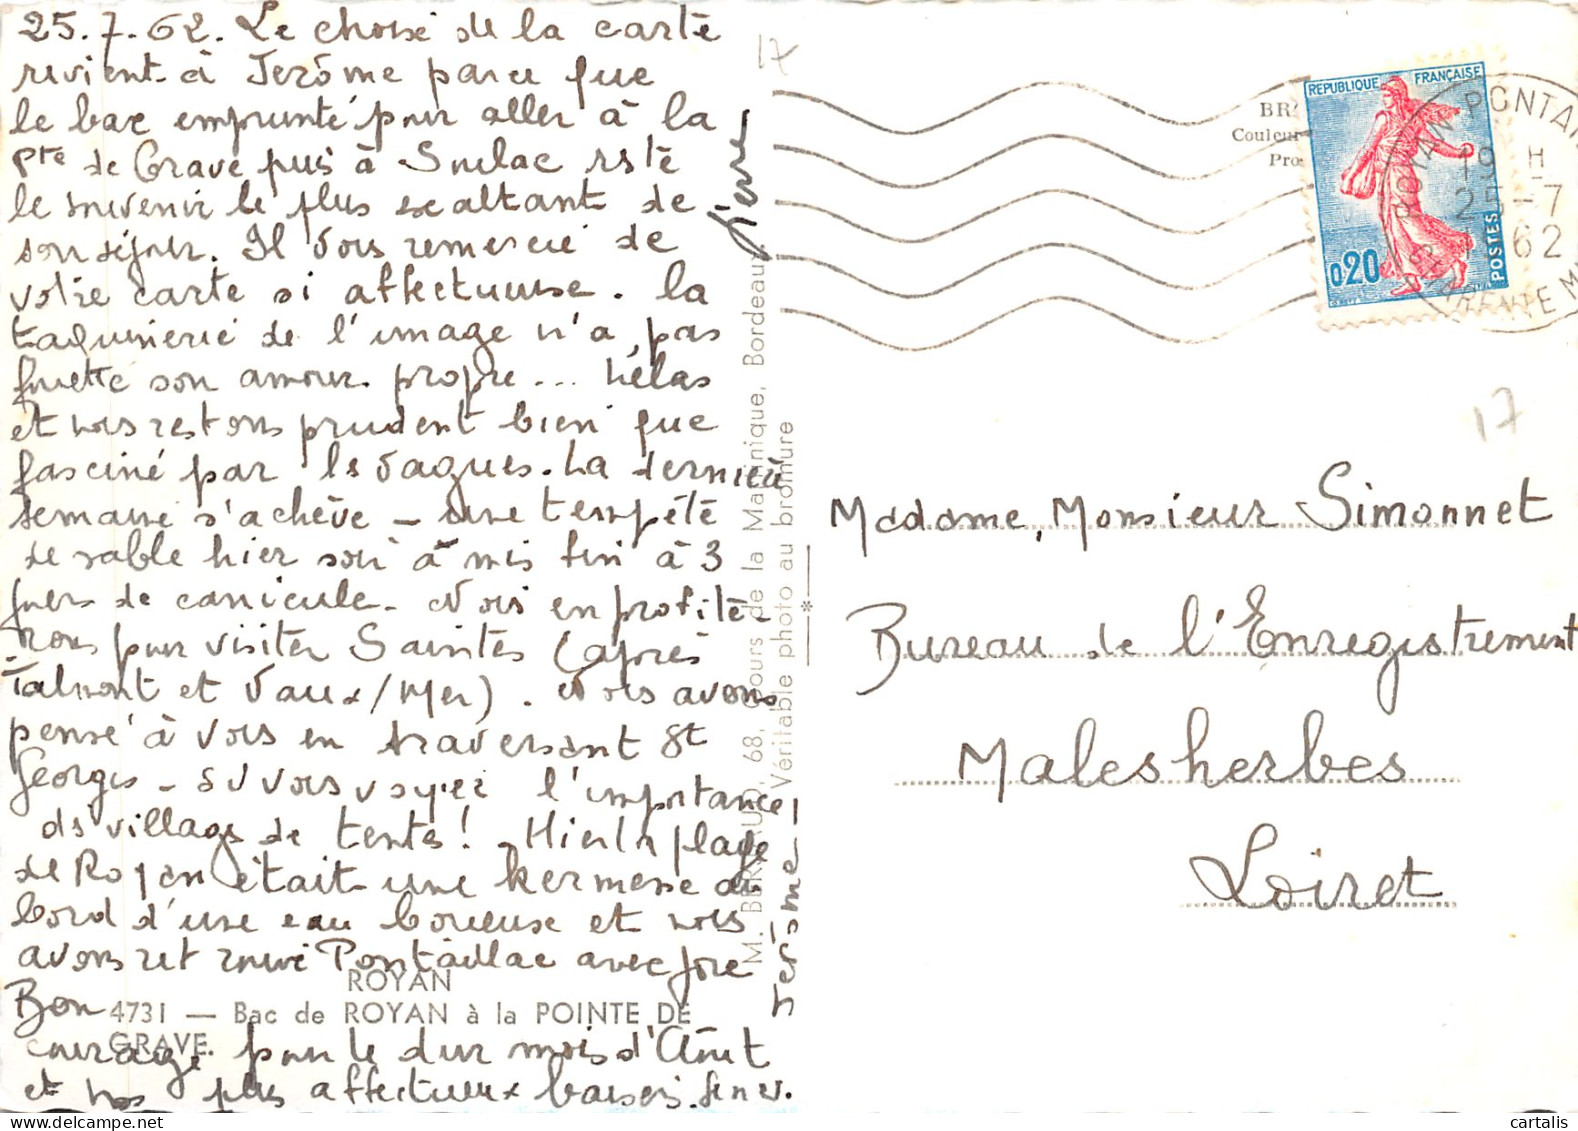 25.7.62. Le choix de la carte
revient à Jérôme parce que
le bac emprunté pour aller à la
Pte de Grave puis à Soulac reste
le souvenir le plus exaltant de
son séjour. Il vous remercie de
votre carte si affectueuse. La
taquinerie de l'image n'a pas
fouetté son amour propre... hélas
et nous restons prudent bien que
fasciné par les vagues. La dernière
semaine s'achève - une tempête
de sable hier soir a mis fin à 3
jours de canicule. Nous en profite-
rons pour visiter Saintes (après
Talmont et Vaux/Mer). Nous avons
pensé à vous en traversant St
Georges - si vous voyiez l'importance
des villages de tentes! - Hier la plage
de Royan était une kermesse au
bord d'une eau boueuse et nous
avons retrouvé Pontaillac avec joie
Bon
courage pour le dur mois d'Août
et nos plus affectueux baisers.
Jérôme
ROYAN
4731 — Bac de ROYAN à la POINTE DE
GRAVE.
M. 68, Cours de la Martinique, Bordeaux
Véritable photo au bromure
17
BR
Couleur
Pro
REPUBLIQUE FRANÇAISE
0,20
POSTES
ROYAN PONTAI
19 H
25-7
62
17
Madame, Monsieur Simonnet
Bureau de l'Enregistrement
Malesherbes
Loiret
cartalis